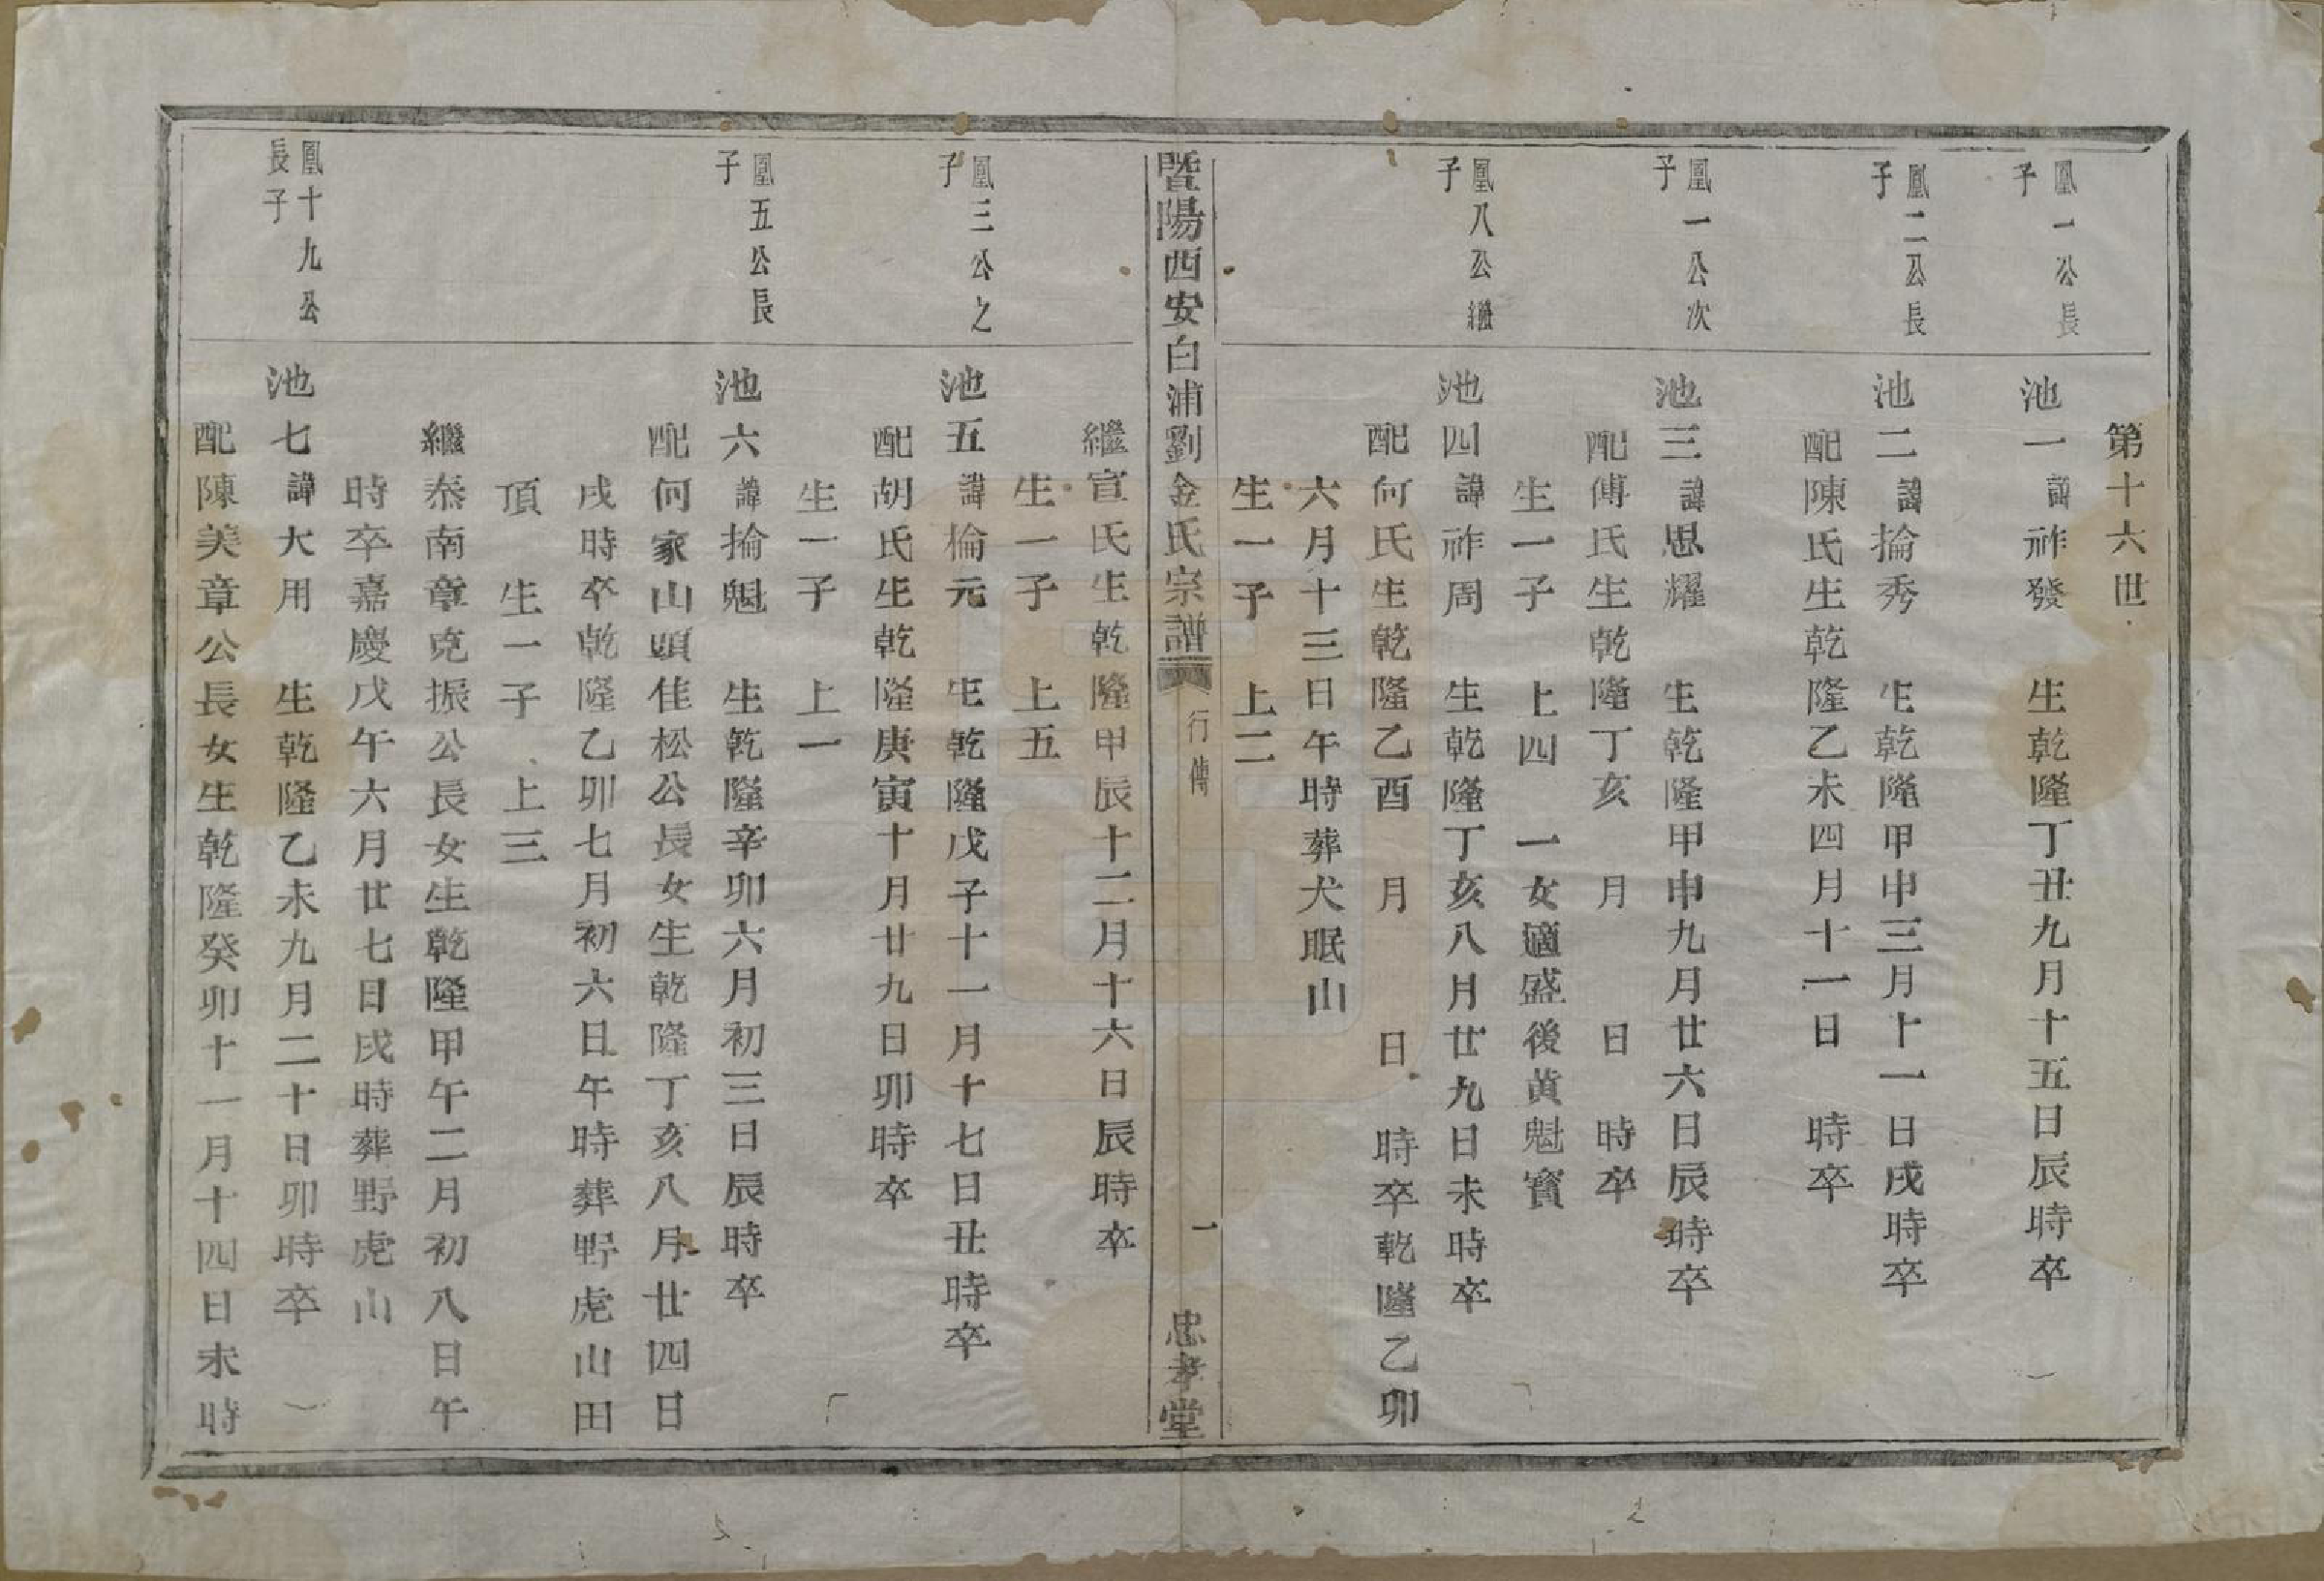 第十六世
鳳一公長子
池一諱祚發　生乾隆丁丑九月十五日辰時卒
鳳二公長子
池二諱掄秀　生乾隆甲申三月十一日戌時卒
配陳氏生乾隆乙未四月十一日　時卒
鳳一公次子
池三諱思耀　生乾隆甲申九月廿六日辰時卒
配傅氏生乾隆丁亥　月　日　時卒
生一子　上四　一女適盛後黃魁寶
鳳八公繼子
池四諱祚周　生乾隆丁亥八月廿九日未時卒
配何氏生乾隆乙酉　月　日　時卒乾隆乙卯
六月十三日午時葬犬眠山
生一子　上二
暨陽西安白浦劉金氏宗譜　行傳　一　忠孝堂
繼宣氏生乾隆甲辰十二月十六日辰時卒
生一子　上五
鳳三公之子
池五諱掄元　生乾隆戊子十一月十七日丑時卒
配胡氏生乾隆庚寅十月廿九日卯時卒
生一子　上一
鳳五公長子
池六諱掄魁　生乾隆辛卯六月初三日辰時卒
配何家山頭佳松公長女生乾隆丁亥八月廿四日
戌時卒乾隆乙卯七月初六日午時葬野虎山田
頂　生一子　上三
繼泰南章克振公長女生乾隆甲午二月初八日午
時卒嘉慶戊午六月廿七日戌時葬野虎山
鳳十九公長子
池七諱大用　生乾隆乙未九月二十日卯時卒
配陳美章公長女生乾隆癸卯十一月十四日未時